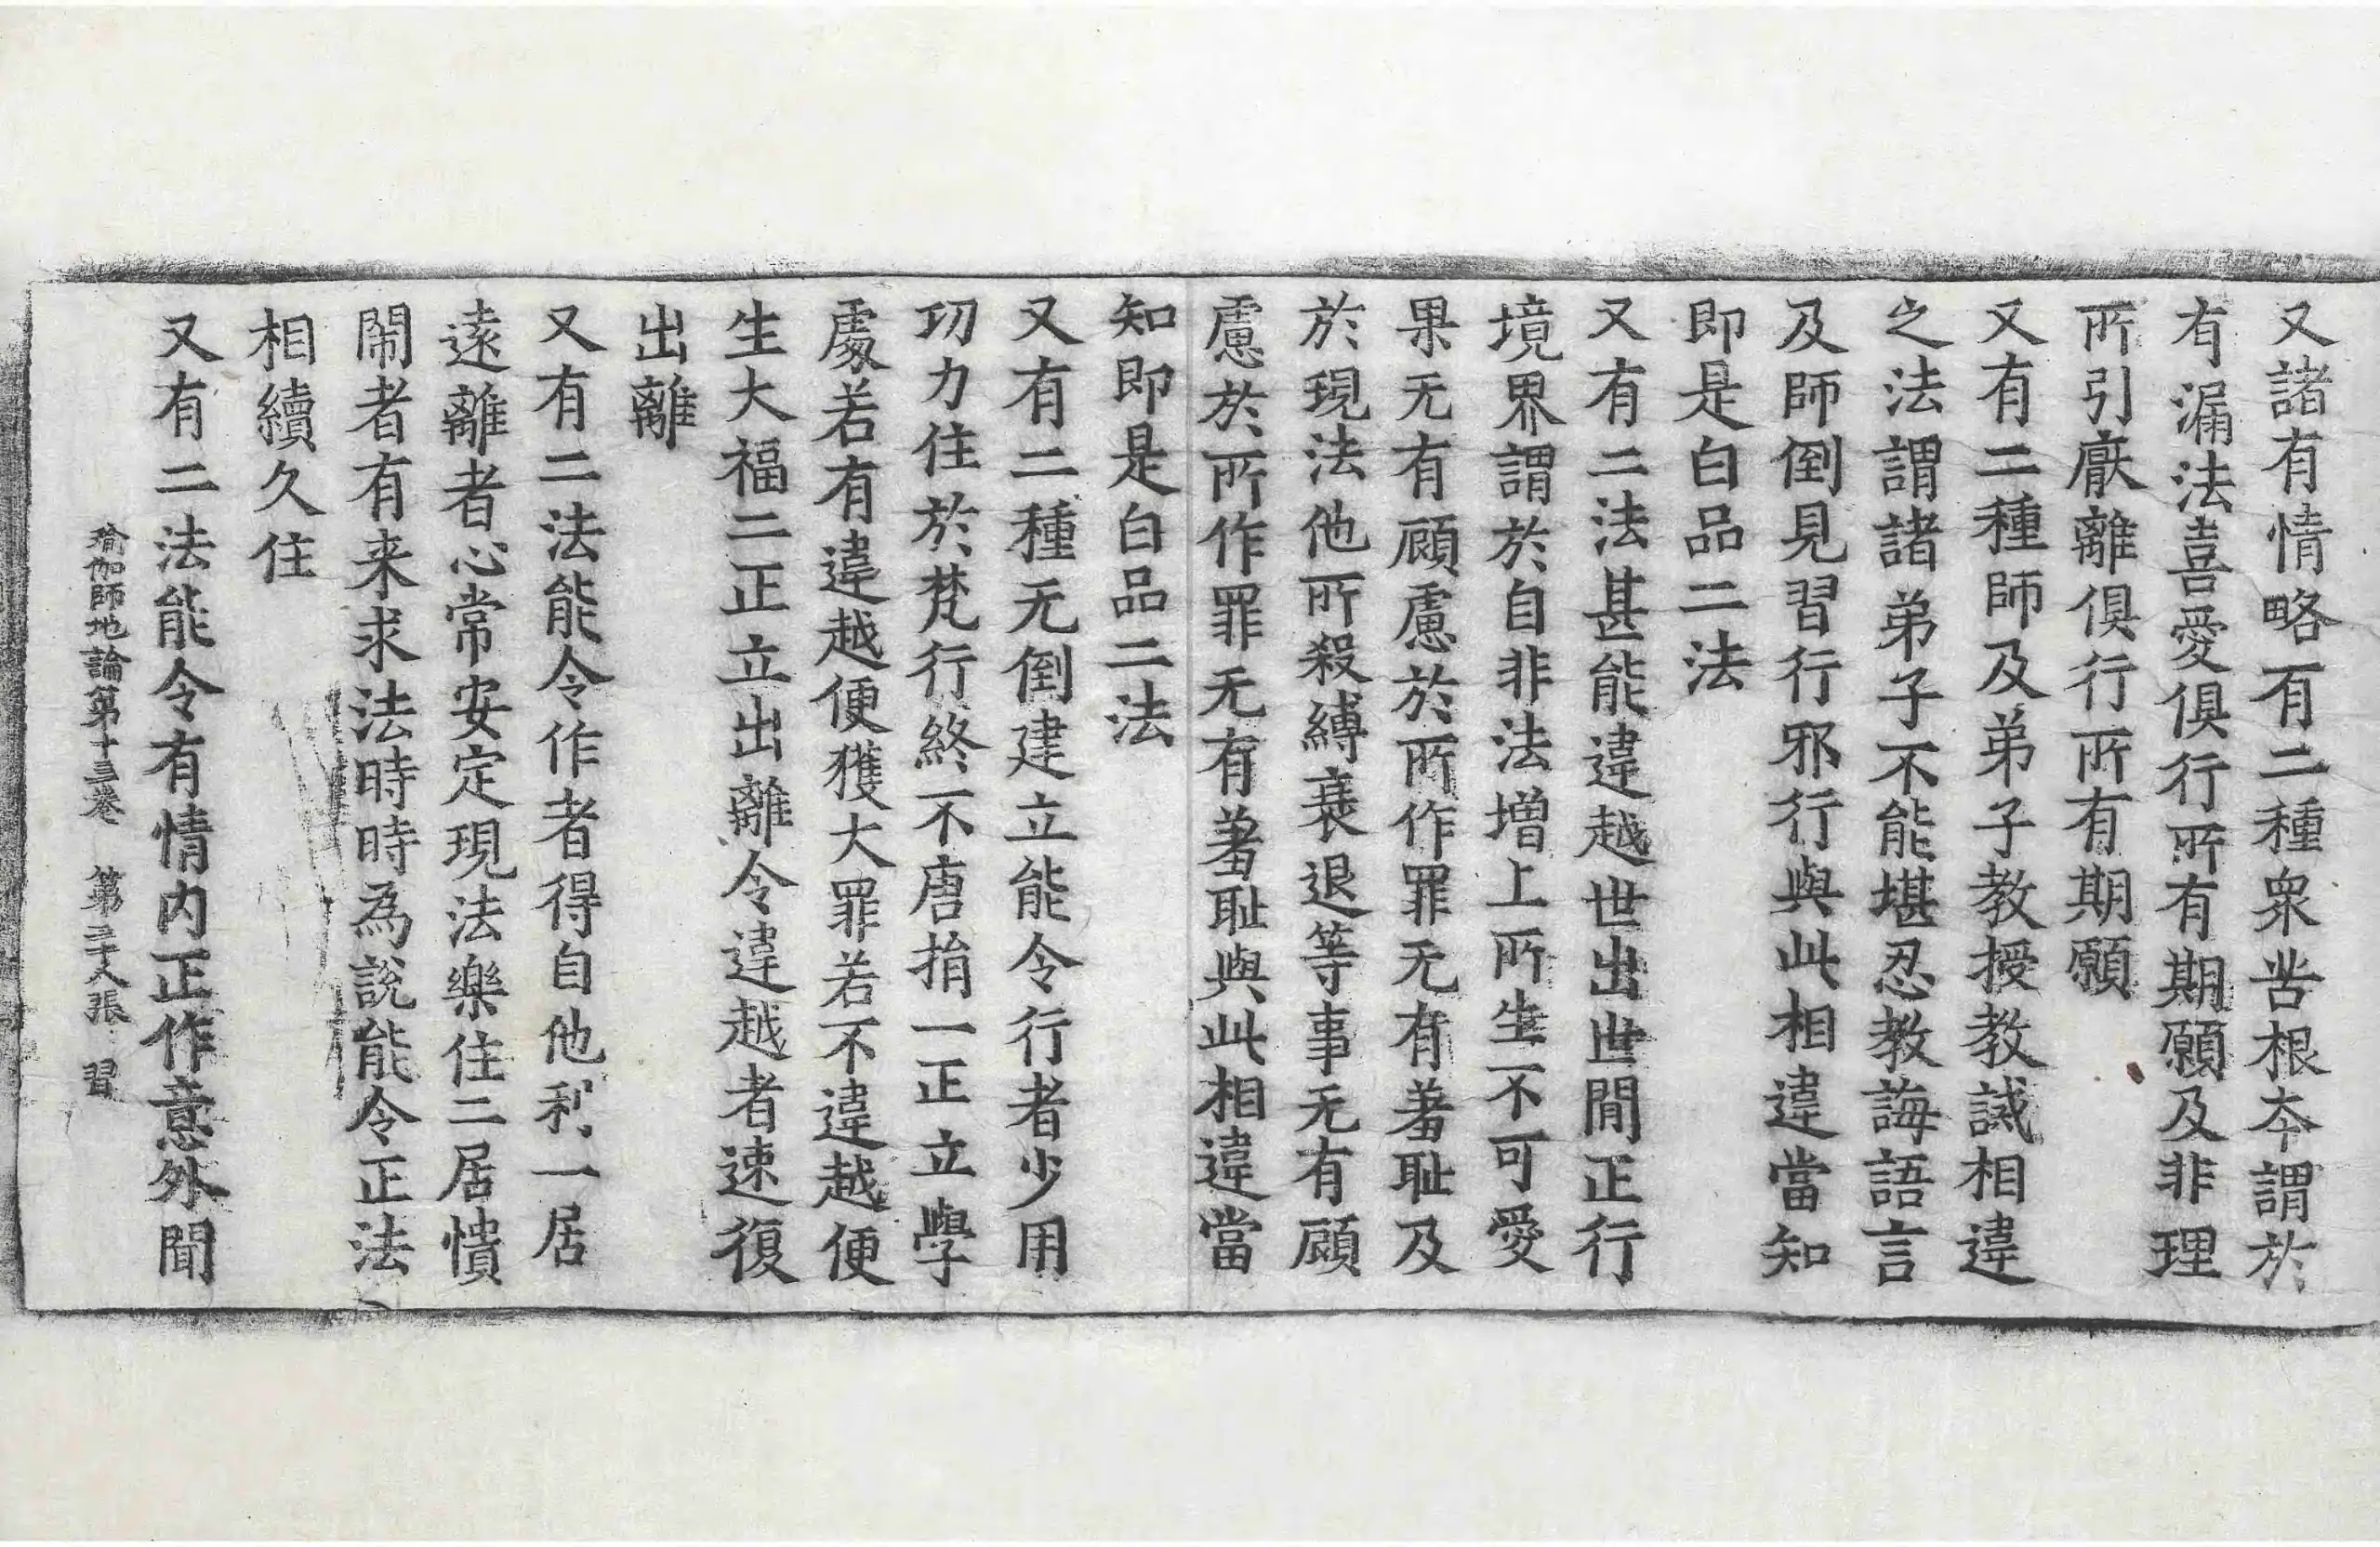 又諸有情略有二種衆苦根夲謂於
有漏法喜愛俱行所有期願及非理
所引厭離俱行所有期願
又有二種師及弟子教授教誡相違
之法謂諸弟子不能堪忍教誨語言
及師倒見習行邪行與此相違當知
即是白品二法
又有二法甚能違越世出世間正行
境界謂於自非法增上所生不可愛
果无有顧慮於所作罪无有羞耻及
於現法他所殺縛衰退等事无有顧
慮於所作罪无有羞耻與此相違當
知即是白品二法
又有二種无倒建立能令行者少用
功力住於梵行終不唐捐一正立學
處若有違越便獲大罪若不違越便
生大福二正立出離令違越者速復
出離
又有二法能令作者得自他利一居
遠離者心常安定現法樂住二居憒
閙者有来求法時時為說能令正法
相續久住
又有二法能令有情內正作意外聞
瑜伽師地論第十三卷 第三十八張 習